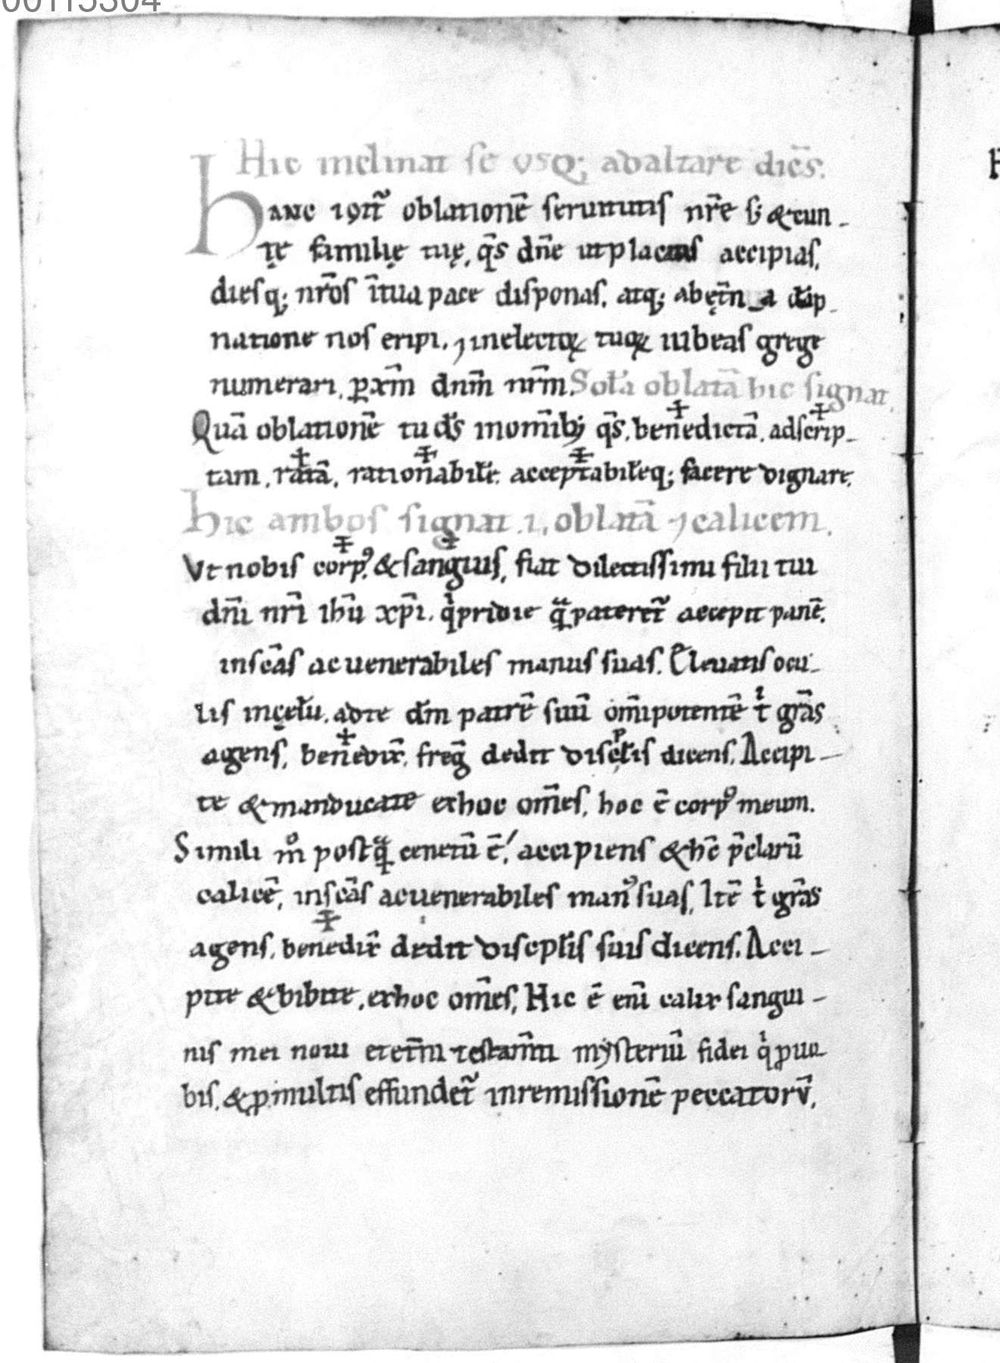 00115304
Hic inclinat se usq; ad altare dicēs.
Hanc igit̄ oblationē seruitutis nr̄e s; & cun-
tę familię tuę, q̄s dn̄e ut placatus accipias,
diesq; nr̄os ītua pace disponas, atq; ab ęt̄na dāp-
natione nos eripi, ⁊ inelectoꝝ tuoꝝ iubeas grege
numerari, ꝑ xp̄m dnm̄ nrm̄. Sola oblatā hic signat,
Quā oblationē tu d̄s inomīb; q̄s, bene✝dictā, adscrip✝-
tam, ra✝tā, rationa✝bilē, accepta✝bilēq; facere dignare,
hic ambos signat .i, oblatā ⁊ calicem,
Vt nobis corp✝ꝰ & san✝guis, fiat dilectissimi filii tui
dn̄i nr̄i ihū xp̄i, q̇ pridie q̄ pateret̄ accepit panē,
inscās ac uenerabiles manus suas, Eleuatis ocu-
lis incęlū, adte dm̄ patrē suū om̄ipotentē t̓ gr̄as
agens, bene✝dix̄, freḡ dedit discplis̄ dicens, Accipi-
te & manducate exhoc om̄es, hoc ē corpꝰ meum.
Simili m̊ postq̄ cenatū ē, accipiens & hc̄ p̄clarū
calicē, inscās acuenerabiles manꝰ suas, Itē t̓ gr̄as
agens, bene✝dix̄ dedit discplis̄ suis dicens, Acci-
pite & bibite, exhoc om̄es, Hic ē eni̅ calix sangui-
nis mei noui etet̄ni testam̄ti mysteriū fidei q̇ ꝓ uo-
bis, & ꝓ multis effundet̄ inremissionē peccatorū,